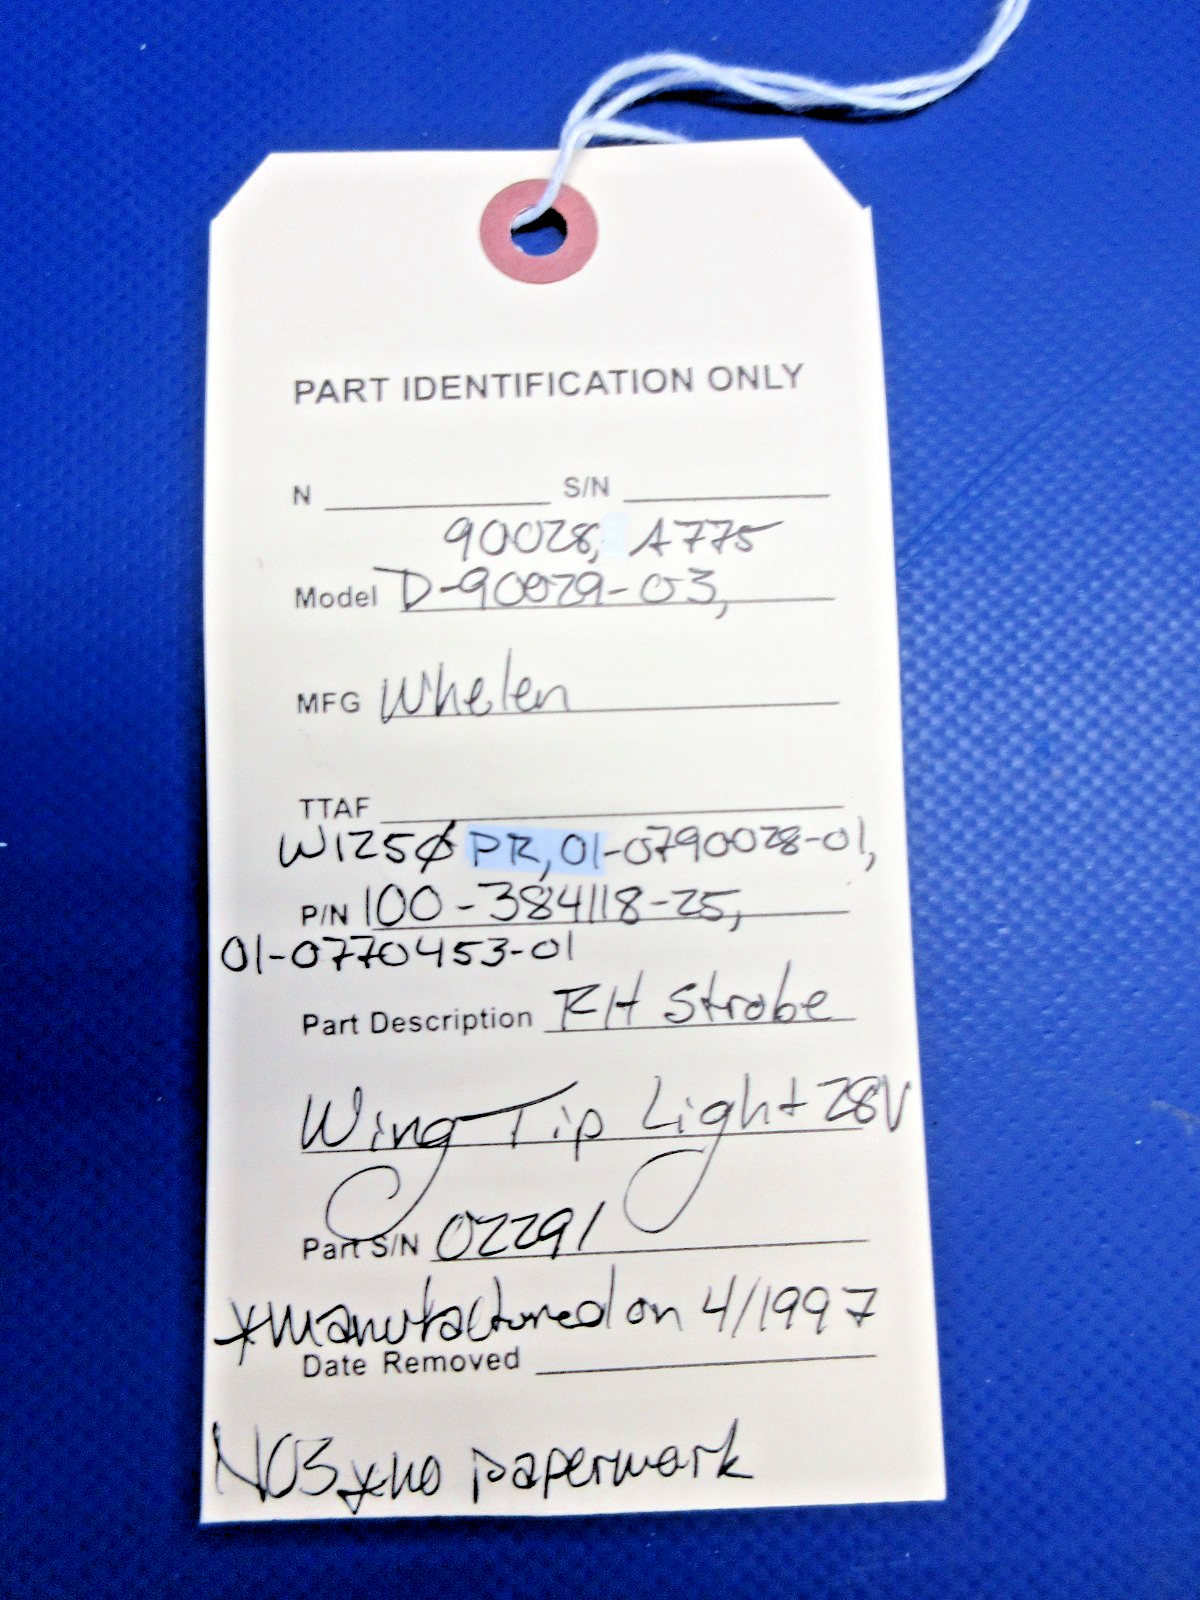 PART IDENTIFICATION ONLY
N S/N
90028, A775
Model D-90029-03,
MFG Whelen
TTAF
W1250 PR, 01-0790028-01,
P/N 100-384118-25,
01-0770453-01
Part Description RH Strobe
Wing Tip Light 28V
Part S/N 02291
*manufactured on 4/1997
Date Removed
NOS *no paperwork